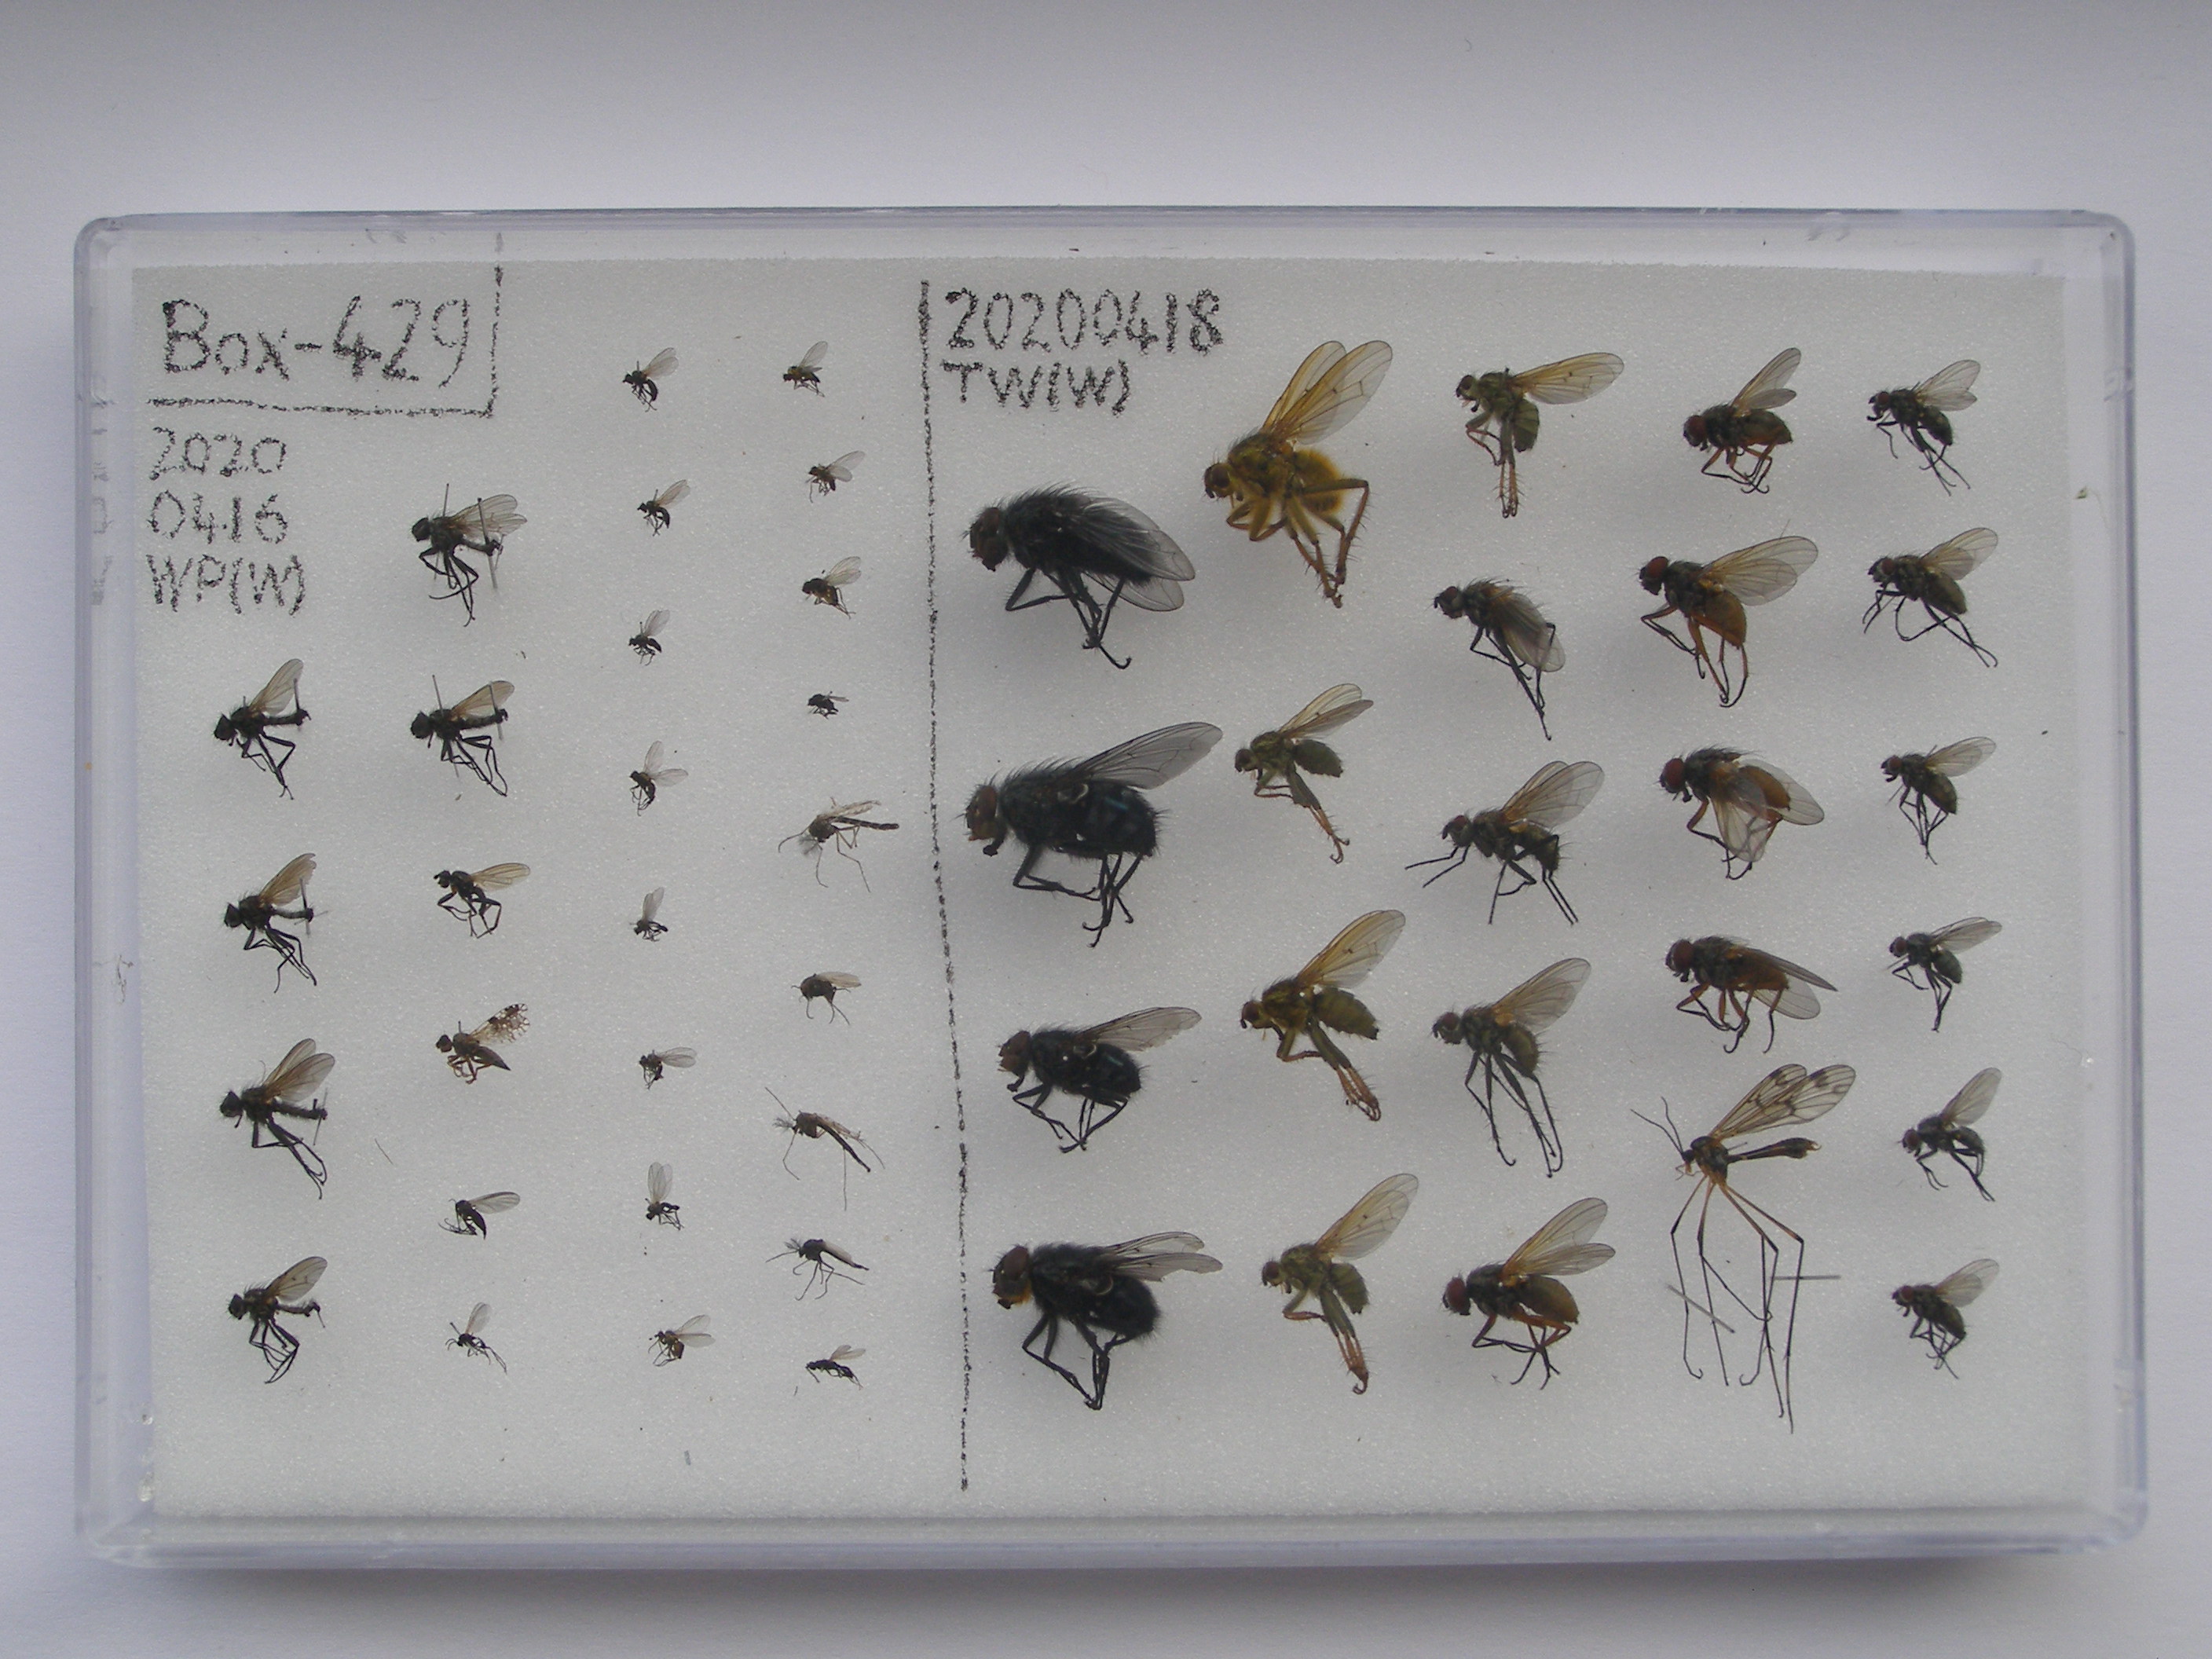 Box-429
2020
0416
WP(W)
20200418
TW(W)